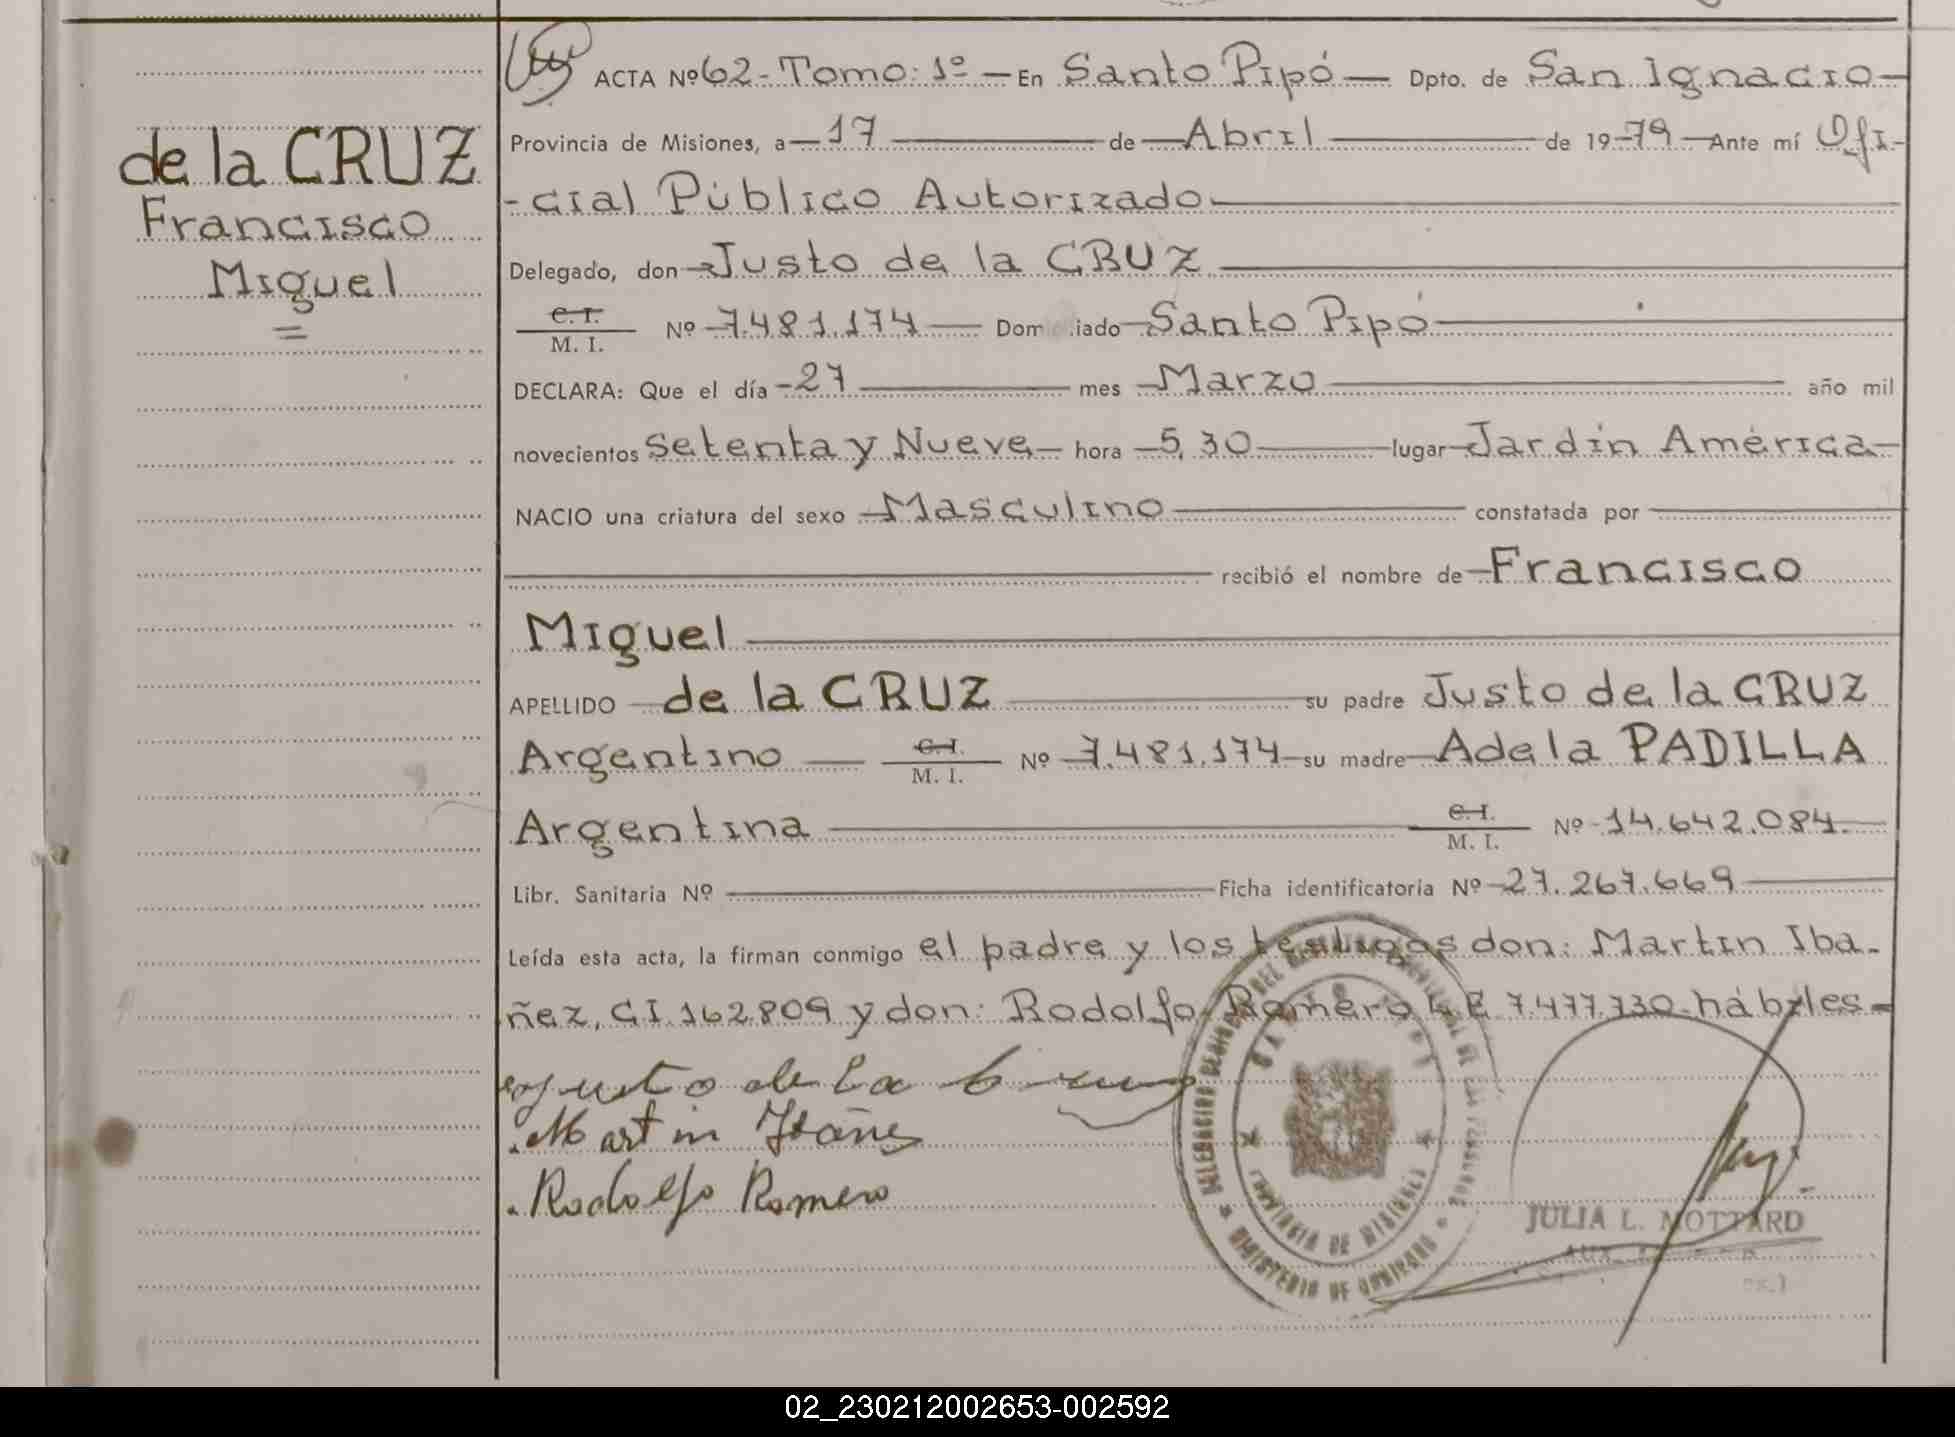 de la CRUZ
Francisco
Miguel
ACTA Nº 62 - Tomo: 1º - En Santo Pipó - Dpto. de San Ignacio -
Provincia de Misiones, a - 17 - de - Abril - de 19 79 - Ante mí Ofi-
-cial Público Autorizado
Delegado, don - Justo de la CRUZ
C. I.
M. I. Nº 7.481.174 - Dom iado - Santo Pipó
DECLARA: Que el día - 27 - mes - Marzo - año mil
novecientos Setenta y Nueve - hora - 5,30 - lugar - Jardín América -
NACIO una criatura del sexo - Masculino - constatada por
recibió el nombre de - Francisco
Miguel
APELLIDO - de la CRUZ - su padre Justo de la CRUZ
Argentino - C. I.
M. I. Nº 7.481.174 - su madre - Adela PADILLA
Argentina - C. I.
M. I. Nº - 14.642.084.-
Libr. Sanitaria Nº - Ficha identificatoria Nº - 27.267.669
Leída esta acta, la firman conmigo el padre y los testigos don: Martin Iba-
ñez, CI. 162.809 y don: Rodolfo Romero L E 7.477.730 - hábiles -
Justo de la Cruz
Martin Ibañes
Rodolfo Romero
PROVINCIA DE MISIONES
MINISTERIO DE GOBIERNO
JULIA L. MOTTARD
02_230212002653-002592